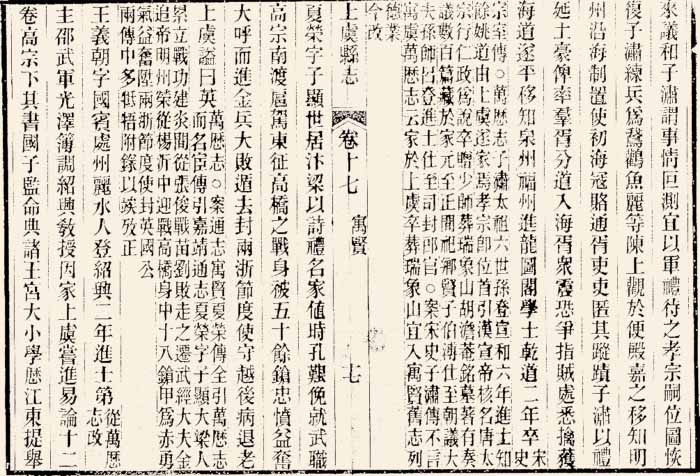 來議和子潚謂事情叵測宜以軍禮待之孝宗嗣位圖恢
復子潚練兵爲鵞鸛魚麗等陳上觀於便殿嘉之移知明
州沿海制置使初海寇賂通胥吏吏匿其蹤蹟子潚以禮
延土豪俾率羣胥分道入海胥衆震恐爭指賊處悉擒獲
海道遂平移知泉州福州進龍圖閣學士乾道二年卒宋史
宗室傳○萬歷志子潚太祖六世孫登宣和六年進士知
餘姚道由上虞遂家焉孝宗即位首引漢宣帝核名唐太
宗行仁政爲說卒贈少師葬瑞象山胡澹菴銘墓著有奏
議數百篇藏於家元至正間祀鄉賢子伯漙仕至朝議大
夫孫師呂登進士仕至司封郎官○案宋史子潚傳不言
寓虞萬歷志云家於上虞卒葬瑞象山宜入寓賢舊志列
德業
今改
上虞縣志 卷十七 寓賢 十七
夏榮字子顯世居汴梁以詩禮名家値時孔艱俛就武職
高宗南渡扈駕東征高橋之戰身被五十餘鎗忠憤益奮
大呼而進金兵大敗遁去封兩浙節度使守越後病退老
上虞謚曰英
萬歷志○案通志寓賢夏榮傳全引萬歷志
而名宦傳引嘉靖通志夏榮字子顯大梁人
累立戰功建炎間從張俊戰苗劉敗走之遷武經大夫金
追帝明州榮從楊沂中迎戰高橋身中十八鎗甲爲赤勇
氣益奮陞兩浙節度使封英國公
兩傳中多牴牾附錄以竢攷正
王義朝字國賓處州麗水人登紹興二年進士第從萬歷
志改
主邵武軍光澤簿調紹興敎授因家上虞嘗進易論十二
卷高宗下其書國子監命典諸王宮大小學歷江東提舉